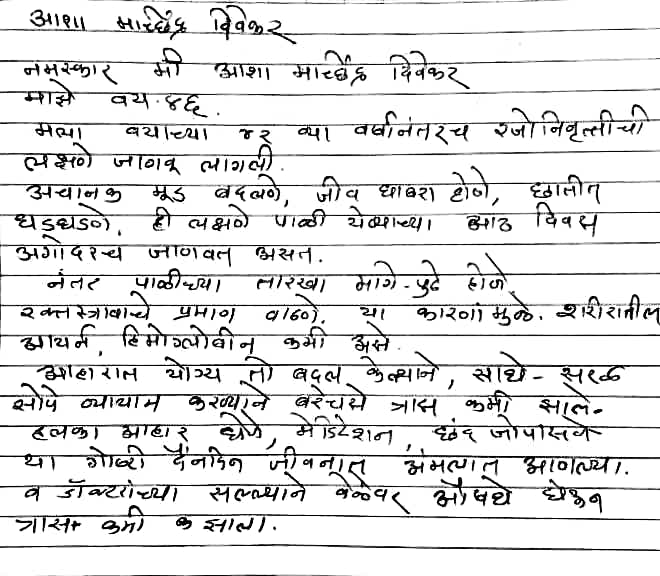 आशा मच्छिंद्र दिवेकर
नमस्कार मी आशा मच्छिंद्र दिवेकर
माझे वय. ४६.
मला वयाच्या ४२ व्या वर्षानंतरच रजोनिवृत्तीची
लक्षणे जाणवू लागली.
अचानक मूड बदलणे, जीव घाबरा होणे, छातीत
धडधडणे, ही लक्षणे पाळी येण्याच्या आठ दिवस
अगोदरच जाणवत असत.
नंतर पाळीच्या तारखा मागे-पुढे होणे,
रक्तस्त्रावाचे प्रमाण वाढणे. या कारणांमुळे. शरीरातील
आयर्न, हिमोग्लोबीन कमी असे.
आहारात योग्य तो बदल केल्याने, साधे-सरळ
सोपे व्यायाम करण्याने बरेचसे त्रास कमी झाले.
हलका आहार घेणे, मेडिटेशन, छंद जोपासणे
या गोष्टी दैनंदिन जीवनात अंमलात आणल्या.
व डॉक्टरांच्या सल्ल्याने वेळेवर औषधे घेऊन
त्रास कमी झाला.